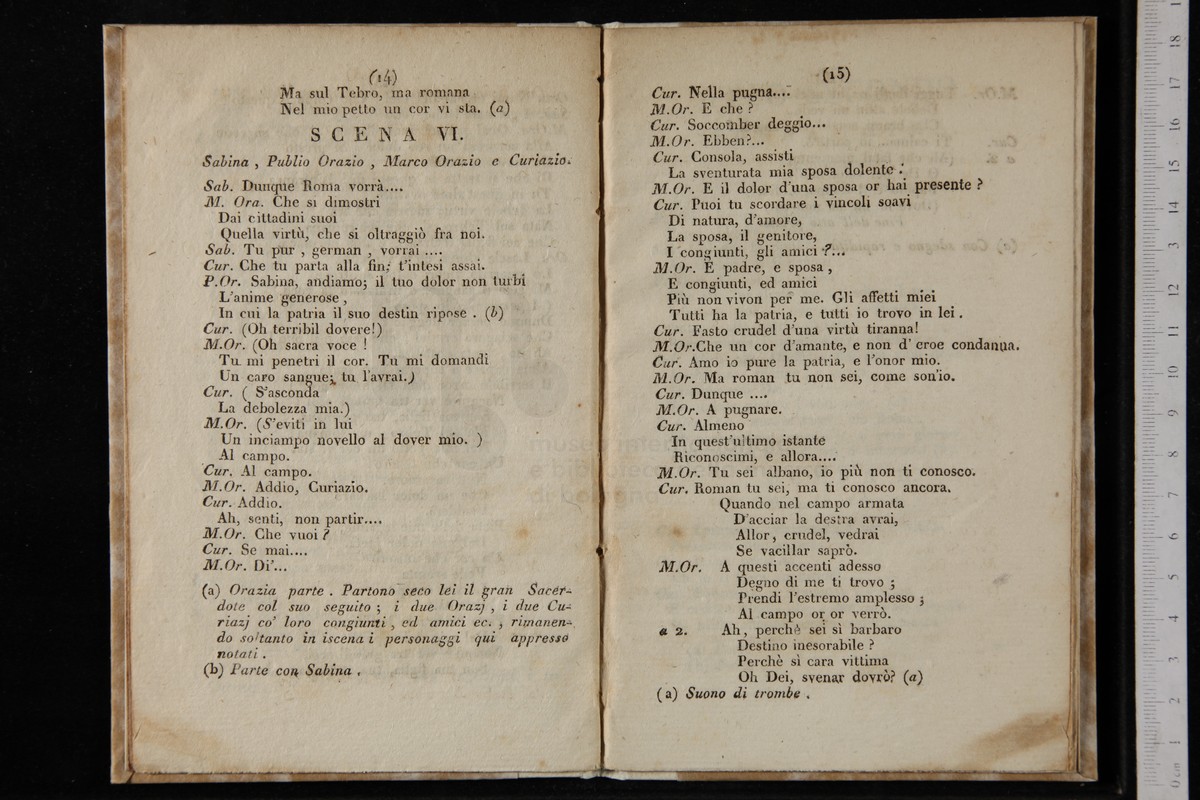 (14)
Ma sul Tebro, ma romana
Nel mio petto un cor vi sta. (a)
SCENA VI.
Sabina , Publio Orazio , Marco Orazio e Curiazio.
Sab. Dunque Roma vorrà....
M. Ora. Che si dimostri
Dai cittadini suoi
Quella virtù, che si oltraggiò fra noi.
Sab. Tu pur , german , vorrai ....
Cur. Che tu parta alla fin; t'intesi assai.
P.Or. Sabina, andiamo; il tuo dolor non turbi
L'anime generose ,
In cui la patria il suo destin ripose . (b)
Cur. (Oh terribil dovere!)
M.Or. (Oh sacra voce !
Tu mi penetri il cor. Tu mi domandi
Un caro sangue; tu l'avrai.)
Cur. ( S'asconda
La debolezza mia.)
M.Or. (S'eviti in lui
Un inciampo novello al dover mio. )
Al campo.
Cur. Al campo.
M.Or. Addio, Curiazio.
Cur. Addio.
Ah, senti, non partir....
M.Or. Che vuoi ?
Cur. Se mai....
M.Or. Di'...
(a) Orazia parte . Partono seco lei il gran Sacer-
dote col suo seguito ; i due Orazj , i due Cu-
riazj co' loro congiunti , ed amici ec. , rimanen-
do soltanto in iscena i personaggi qui appresso
notati .
(b) Parte con Sabina .
(15)
Cur. Nella pugna....
M.Or. E che ?
Cur. Soccomber deggio...
M.Or. Ebben?...
Cur. Consola, assisti
La sventurata mia sposa dolente .
M.Or. E il dolor d'una sposa or hai presente ?
Cur. Puoi tu scordare i vincoli soavi
Di natura, d'amore,
La sposa, il genitore,
I congiunti, gli amici ?...
M.Or. E padre, e sposa ,
E congiunti, ed amici
Più non vivon per me. Gli affetti miei
Tutti ha la patria, e tutti io trovo in lei .
Cur. Fasto crudel d'una virtù tiranna!
M.Or. Che un cor d'amante, e non d' eroe condanna.
Cur. Amo io pure la patria, e l'onor mio.
M.Or. Ma roman tu non sei, come son'io.
Cur. Dunque ....
M.Or. A pugnare.
Cur. Almeno
In quest'ultimo istante
Riconoscimi, e allora....
M.Or. Tu sei albano, io più non ti conosco.
Cur. Roman tu sei, ma ti conosco ancora.
Quando nel campo armata
D'acciar la destra avrai,
Allor , crudel, vedrai
Se vacillar saprò.
M.Or. A questi accenti adesso
Degno di me ti trovo ;
Prendi l'estremo amplesso ;
Al campo or or verrò.
a 2. Ah , perchè sei sì barbaro
Destino inesorabile ?
Perchè sì cara vittima
Oh Dei, svenar dovrò? (a)
(a) Suono di trombe .